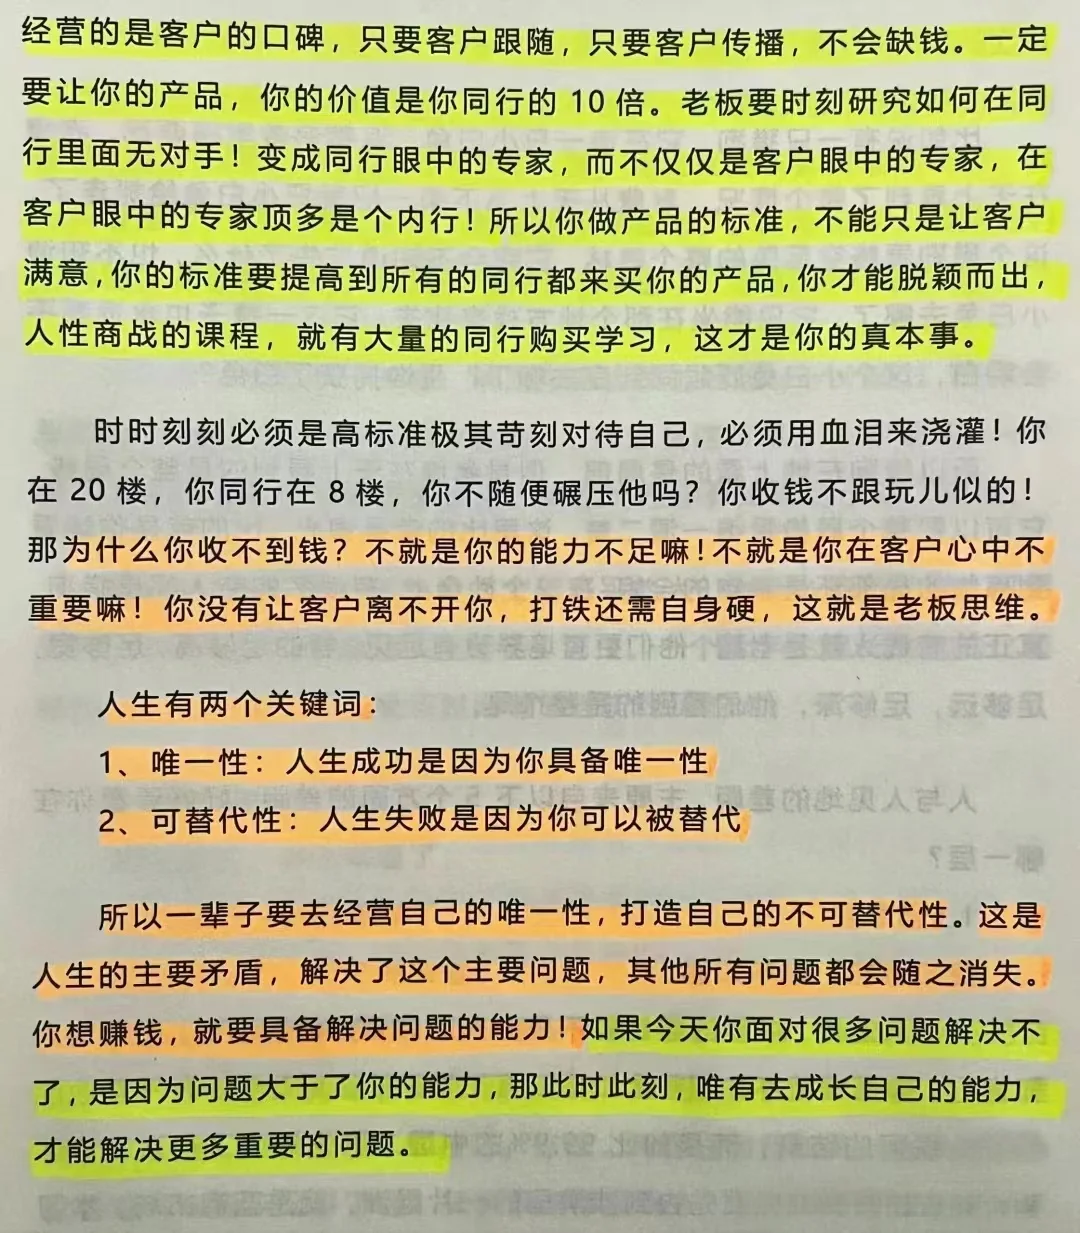 经营的是客户的口碑，只要客户跟随，只要客户传播，不会缺钱。一定
要让你的产品，你的价值是你同行的 10 倍。老板要时刻研究如何在同
行里面无对手！变成同行眼中的专家，而不仅仅是客户眼中的专家，在
客户眼中的专家顶多是个内行！所以你做产品的标准，不能只是让客户
满意，你的标准要提高到所有的同行都来买你的产品，你才能脱颖而出，
人性商战的课程，就有大量的同行购买学习，这才是你的真本事。
时时刻刻必须是高标准极其苛刻对待自己，必须用血泪来浇灌！你
在 20 楼，你同行在 8 楼，你不随便碾压他吗？你收钱不跟玩儿似的！
那为什么你收不到钱？不就是你的能力不足嘛！不就是你在客户心中不
重要嘛！你没有让客户离不开你，打铁还需自身硬，这就是老板思维。
人生有两个关键词：
1、唯一性：人生成功是因为你具备唯一性
2、可替代性：人生失败是因为你可以被替代
所以一辈子要去经营自己的唯一性，打造自己的不可替代性。这是
人生的主要矛盾，解决了这个主要问题，其他所有问题都会随之消失。
你想赚钱，就要具备解决问题的能力！如果今天你面对很多问题解决不
了，是因为问题大于了你的能力，那此时此刻，唯有去成长自己的能力，
才能解决更多重要的问题。